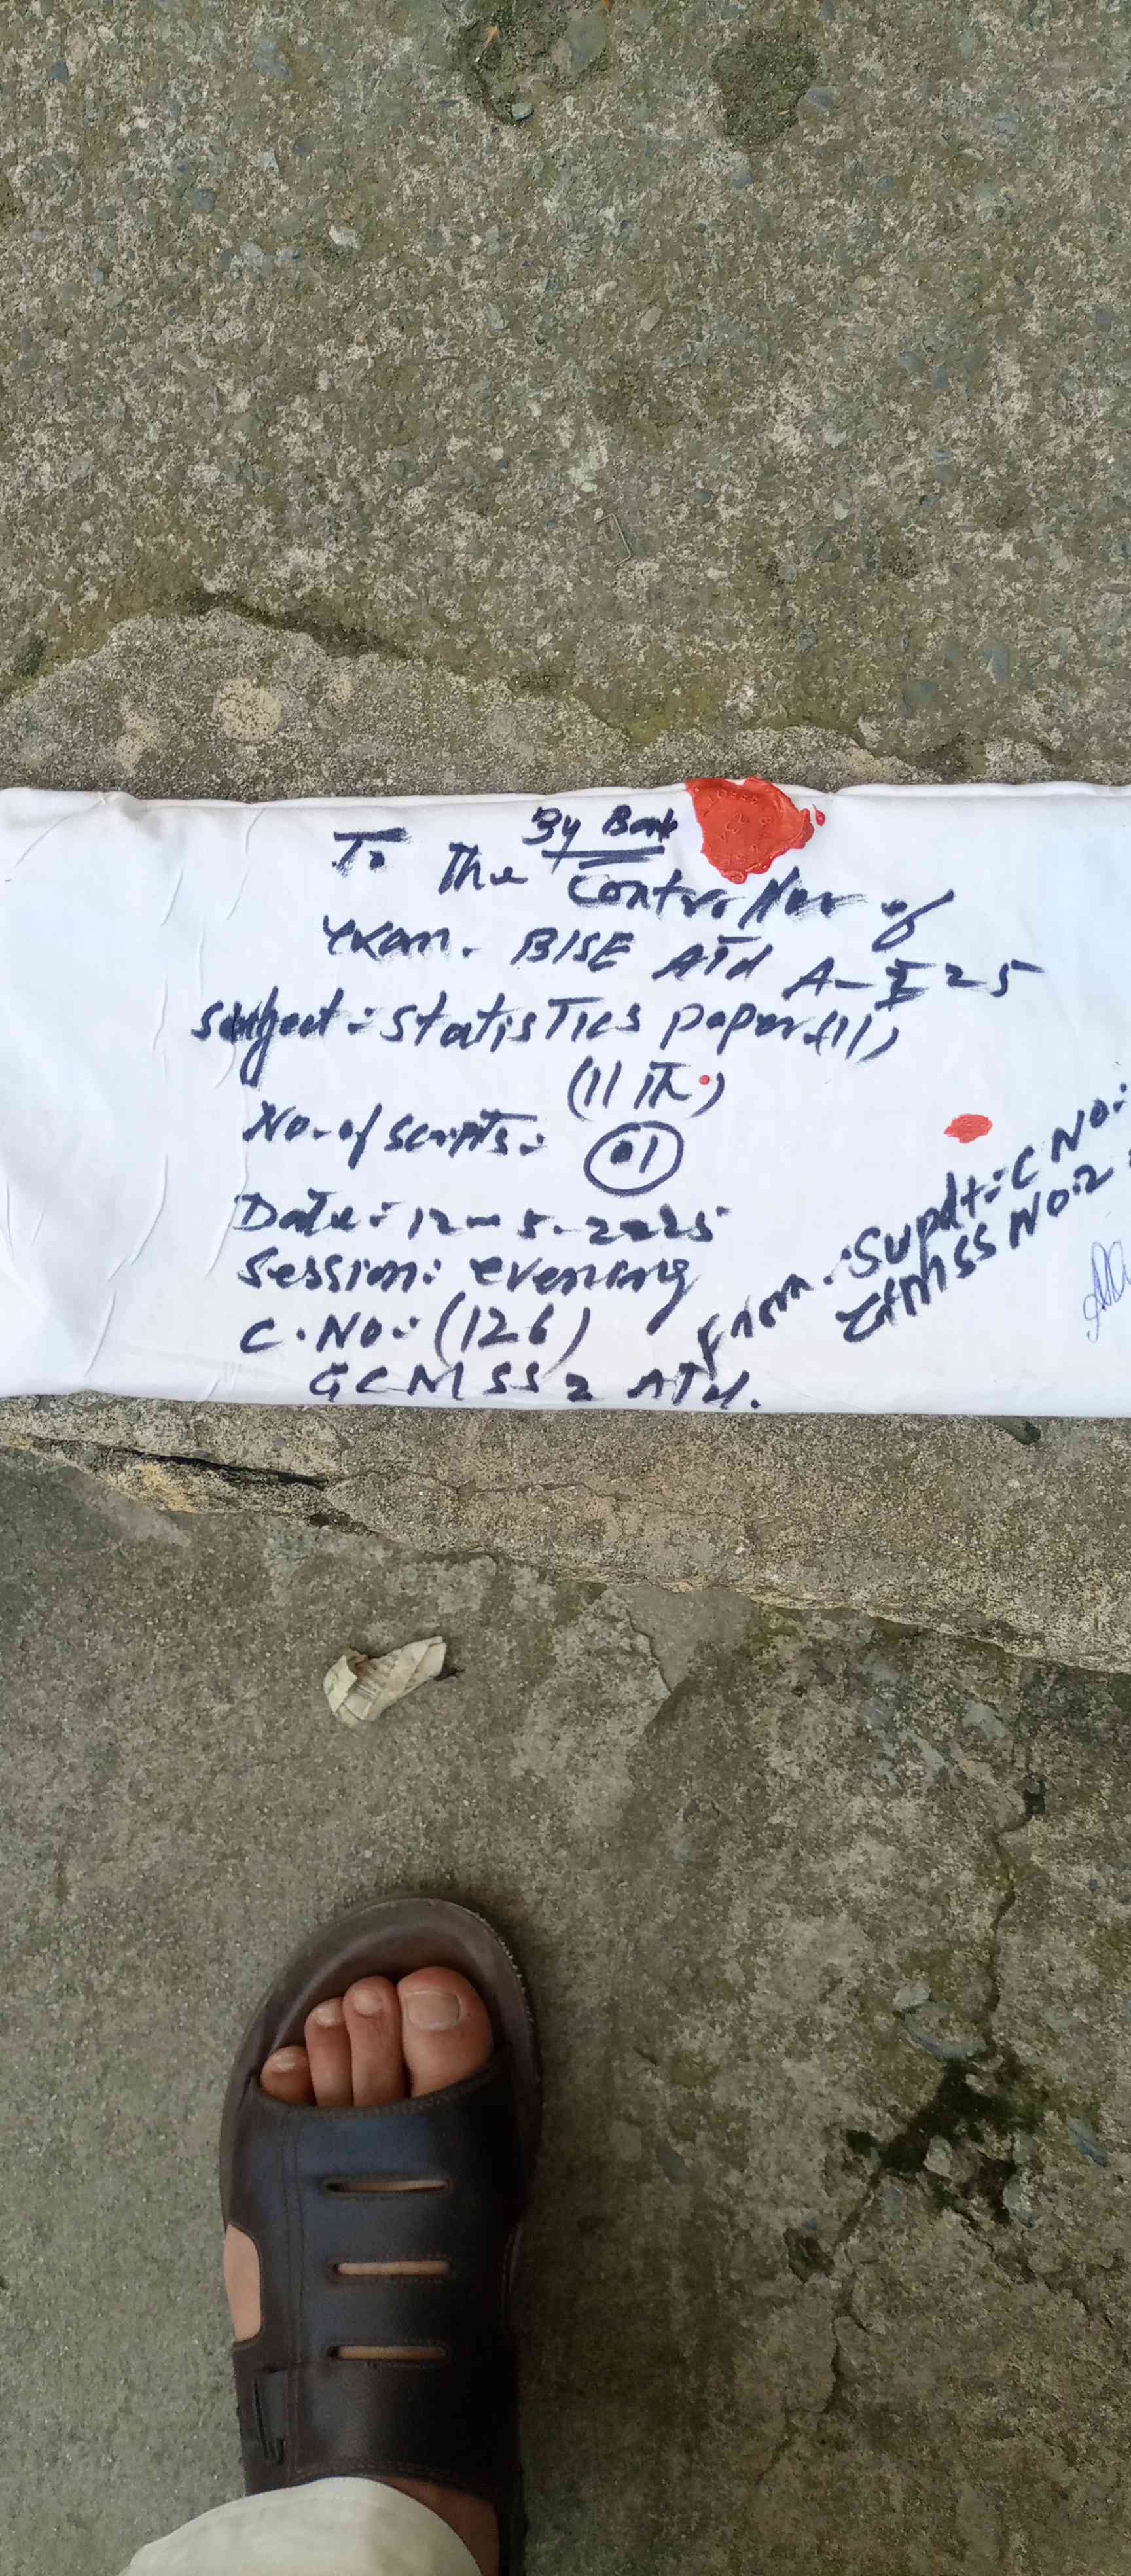 By Bank
To The Controller of
Exam. BISE ATd A-I 25
Subject:- Statistics paper (11)
(11 Th.)
No. of scripts:- 01
Date:- 12-5-2025
Session: evening
C.No:- (126)
GCMSS 2 ATd.
From:- Supdt:- C No:
GCMSS No:2